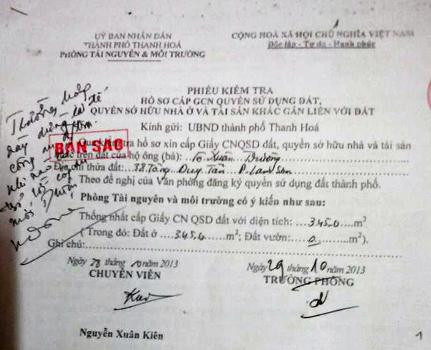 UỶ BAN NHÂN DÂN
THÀNH PHỐ THANH HOÁ
PHÒNG TÀI NGUYÊN & MÔI TRƯỜNG
CỘNG HOÀ XÃ HỘI CHỦ NGHĨA VIỆT NAM
Độc lập - Tự do - Hạnh phúc
PHIẾU KIỂM TRA
HỒ SƠ CẤP GCN QUYỀN SỬ DỤNG ĐẤT,
QUYỀN SỞ HỮU NHÀ Ở VÀ TÀI SẢN KHÁC GẮN LIỀN VỚI ĐẤT
Kính gửi: UBND thành phố Thanh Hoá
BẢN SAO
tra hồ sơ xin cấp Giấy CNQSD đất, quyền sở hữu nhà và tài sản
trên đất của hộ ông (bà): Tô Xuân Đường
chỉ thửa đất: Tống Duy Tân P. Lam Sơn
Theo đề nghị của Văn phòng đăng ký quyền sử dụng đất thành phố.
Phòng Tài nguyên và môi trường có ý kiến như sau:
Thống nhất cấp Giấy CN QSD đất với diện tích: 345.0 m2
( Trong đó: Đất ở 345.0 m2; Đất vườn: 0 m2).
Ghi chú:
Ngày 28 tháng 10 năm 2013
CHUYÊN VIÊN
Ngày 29 tháng 10 năm 2013
TRƯỞNG PHÒNG
Nguyễn Xuân Kiên
1